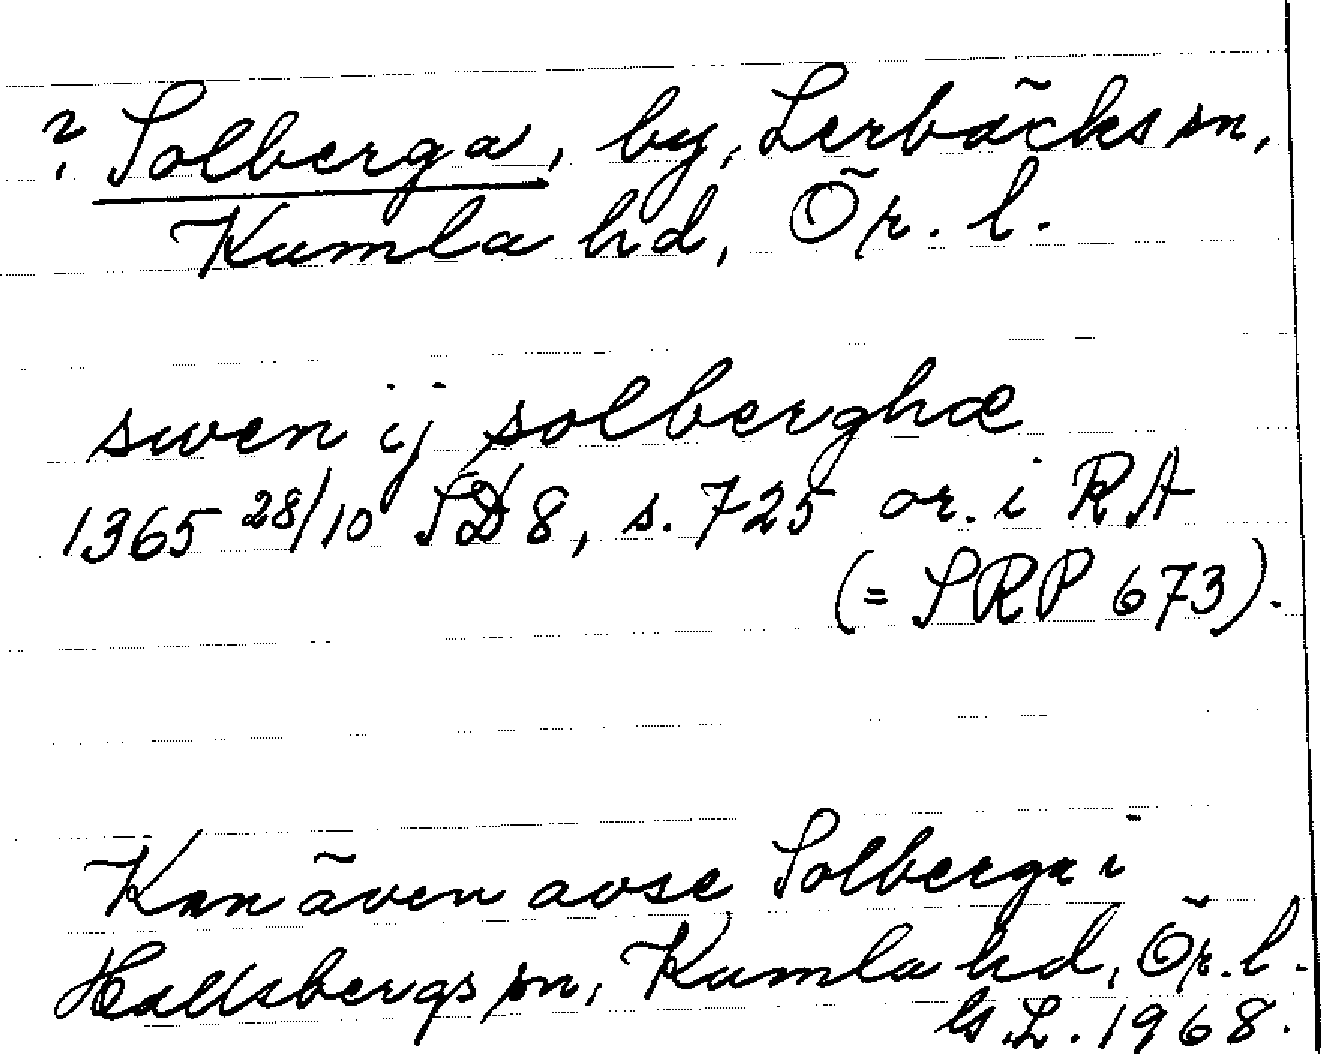 ? Solberga, by, Lerbäcks sn,
Kumla hd, Ör. l.
swen ij solberghæ
1365 28/10 SD 8, s. 725 or. i RA
(= SRP 673).
Kan även avse Solberga i
Hallsbergs sn, Kumla hd, Ör. l.
G.L. 1968.